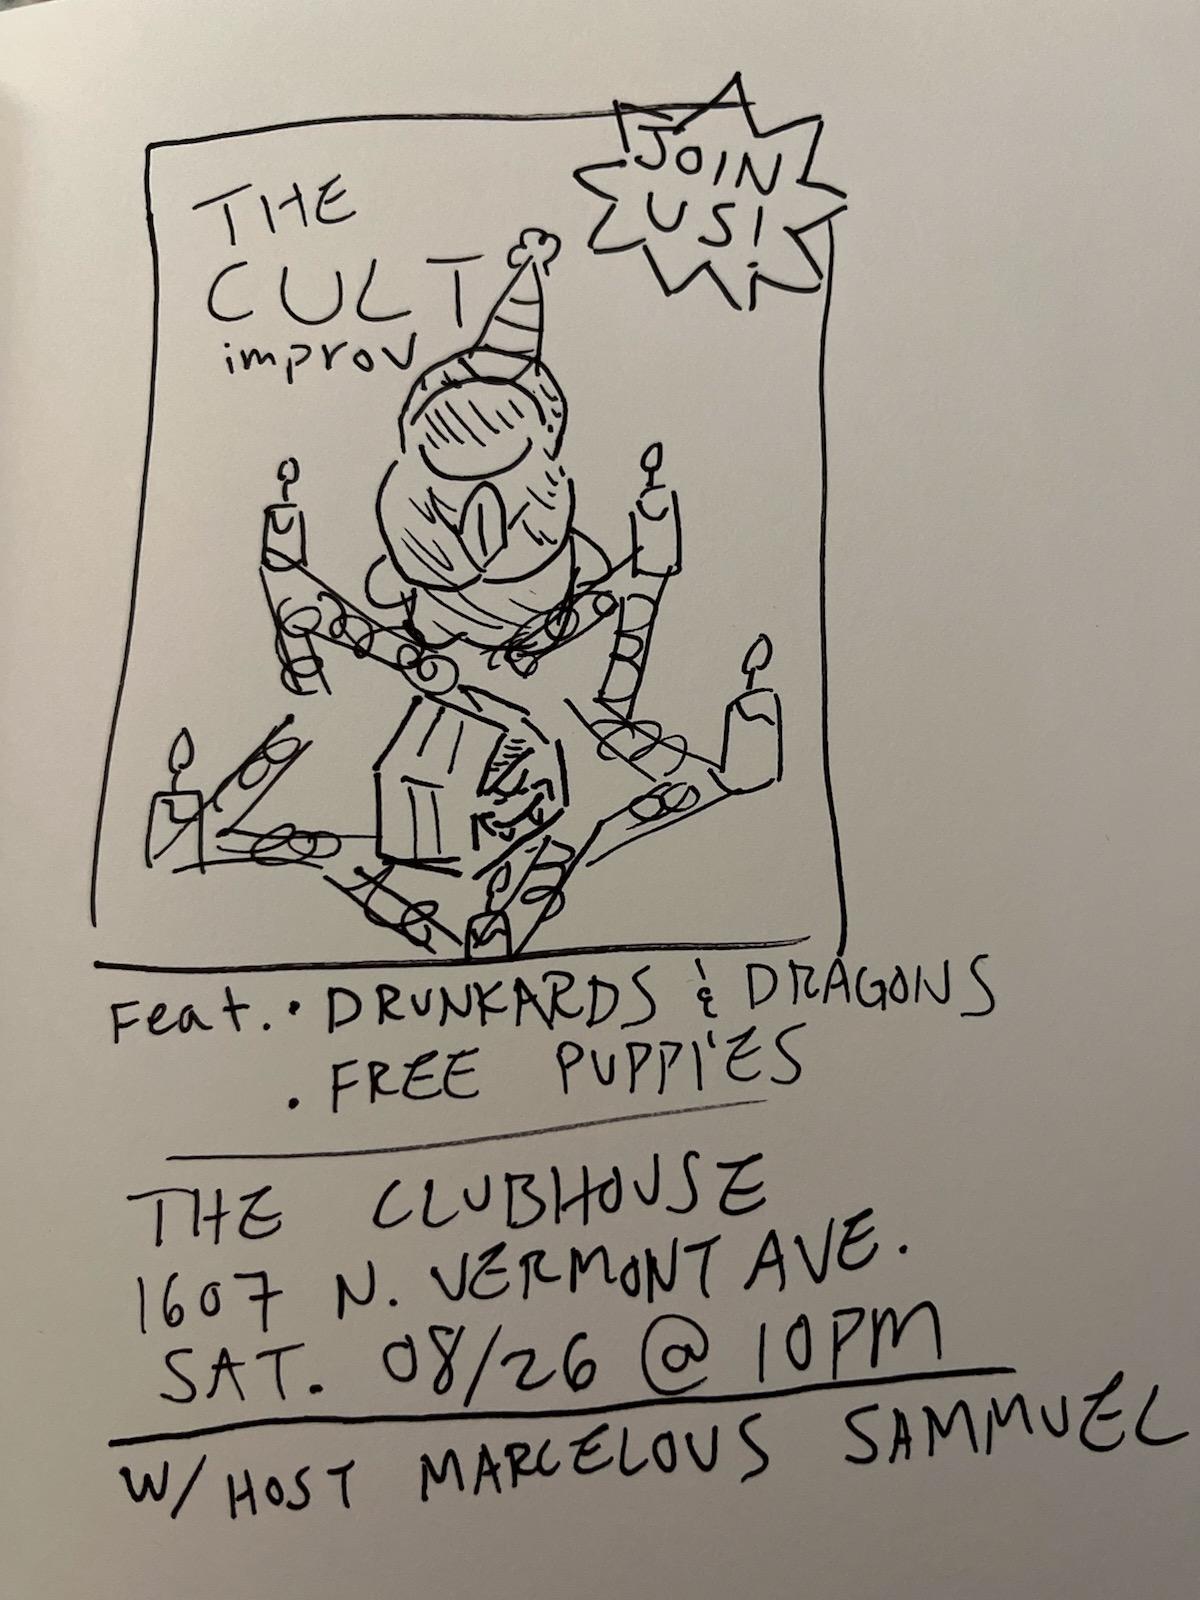 THE
CULT
improv
JOIN
US!
Feat. • DRUNKARDS & DRAGONS
• FREE PUPPIES
THE CLUBHOUSE
1607 N. VERMONT AVE.
SAT. 08/26 @ 10PM
W/ HOST MARCELOUS SAMMUEL